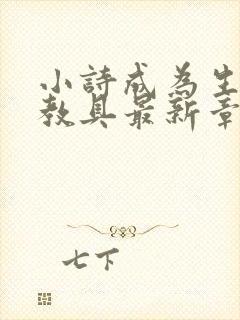 小詩成為生
教具最新章
七下